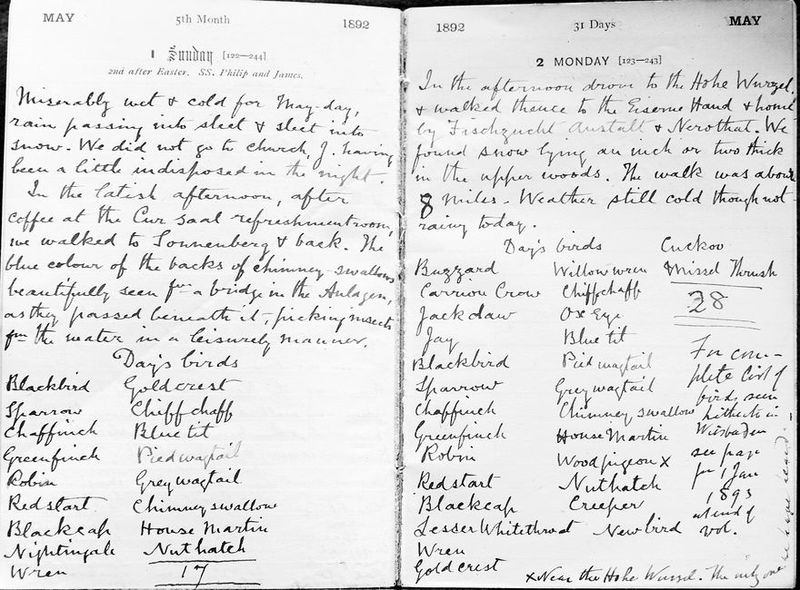 MAY 5th Month 1892
1 Sunday [122—244]
2nd after Easter. SS. Philip and James.
Miserably wet & cold for May-day,
rain passing into sleet & sleet into
snow. We did not go to church, J. having
been a little indisposed in the night.
In the latish afternoon, after
coffee at the Cur Saal refreshment room,
we walked to Sonnenberg & back. The
blue colour of the backs of chimney-swallows
beautifully seen fm a bridge in the Anlagen,
as they passed beneath it, picking insects
fm the water in a leisurely manner.
Day's birds
Blackbird Goldcrest
Sparrow Chiffchaff
Chaffinch Blue tit
Greenfinch Pied wagtail
Robin Grey wagtail
Redstart Chimney swallow
Blackcap House Martin
Nightingale Nuthatch
Wren 17
1892 31 Days MAY
2 MONDAY [123—243]
In the afternoon drove to the Hohe Wurzel,
& walked thence to the Eiserne Hand & home
by Fischzucht Anstalt & Nerothal. We
found snow lying an inch or two thick
in the upper woods. The walk was about
8 miles. Weather still cold though not
rainy today.
Day's birds
Buzzard
Carrion Crow
Jackdaw
Jay
Blackbird
Sparrow
Chaffinch
Greenfinch
Robin
Redstart
Blackcap
Lesser Whitethroat New bird
Wren
Goldcrest
Willow wren
Chiffchaff
Ox Eye
Blue tit
Pied wagtail
Grey wagtail
Chimney swallow
House Martin
Woodpigeon x
Nuthatch
Creeper
Cuckoo
Missel Thrush
28
For com-
plete list of
birds seen
hitherto in
Wiesbaden
see page
for 1 Jan
1893
at end of
vol.
x Near the Hohe Wurzel. The only one
we have seen.